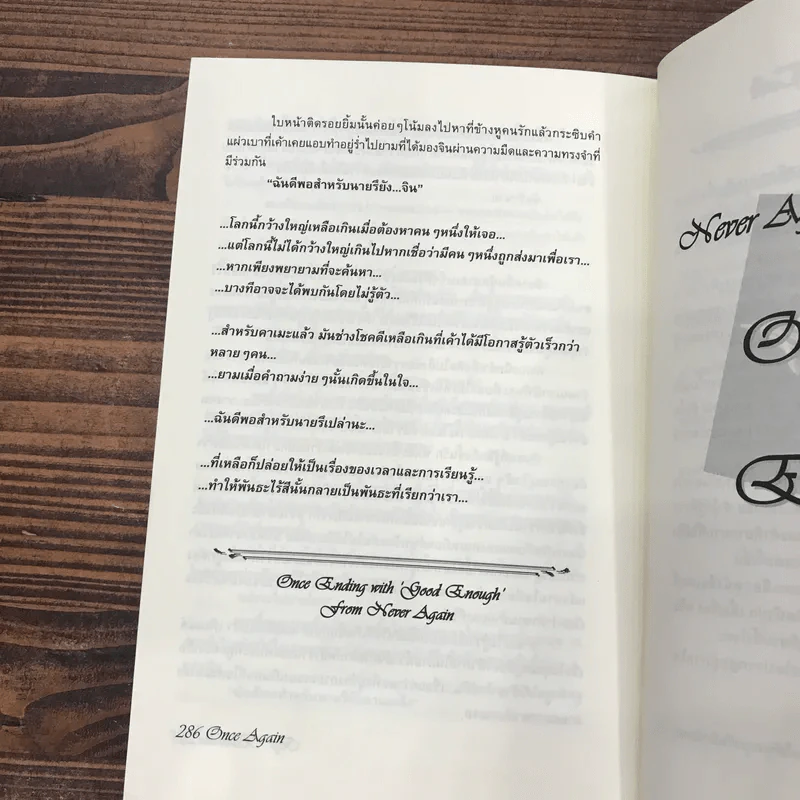 ใบหน้าติดรอยยิ้มนั้นค่อยๆโน้มลงไปหาที่ข้างหูคนรักแล้วกระซิบคำ
แผ่วเบาที่เค้าเคยแอบทำอยู่ร่ำไปยามที่ได้มองจินผ่านความมืดและความทรงจำที่
มีร่วมกัน
“ฉันดีพอสำหรับนายรึยัง...จิน”
...โลกนี้กว้างใหญ่เหลือเกินเมื่อต้องหาคน ๆหนึ่งให้เจอ...
...แต่โลกนี้ไม่ได้กว้างใหญ่เกินไปหากเชื่อว่ามีคน ๆหนึ่งถูกส่งมาเพื่อเรา...
...หากเพียงพยายามที่จะค้นหา...
...บางทีอาจจะได้พบกันโดยไม่รู้ตัว...
...สำหรับคาเมะแล้ว มันช่างโชคดีเหลือเกินที่เค้าได้มีโอกาสรู้ตัวเร็วกว่า
หลาย ๆคน...
...ยามเมื่อคำถามง่าย ๆนั้นเกิดขึ้นในใจ...
...ฉันดีพอสำหรับนายรึเปล่านะ...
...ที่เหลือก็ปล่อยให้เป็นเรื่องของเวลาและการเรียนรู้...
...ทำให้พันธะไร้สีนั้นกลายเป็นพันธะที่เรียกว่าเรา...
Once Ending with 'Good Enough'
From Never Again
286 Once Again
Never